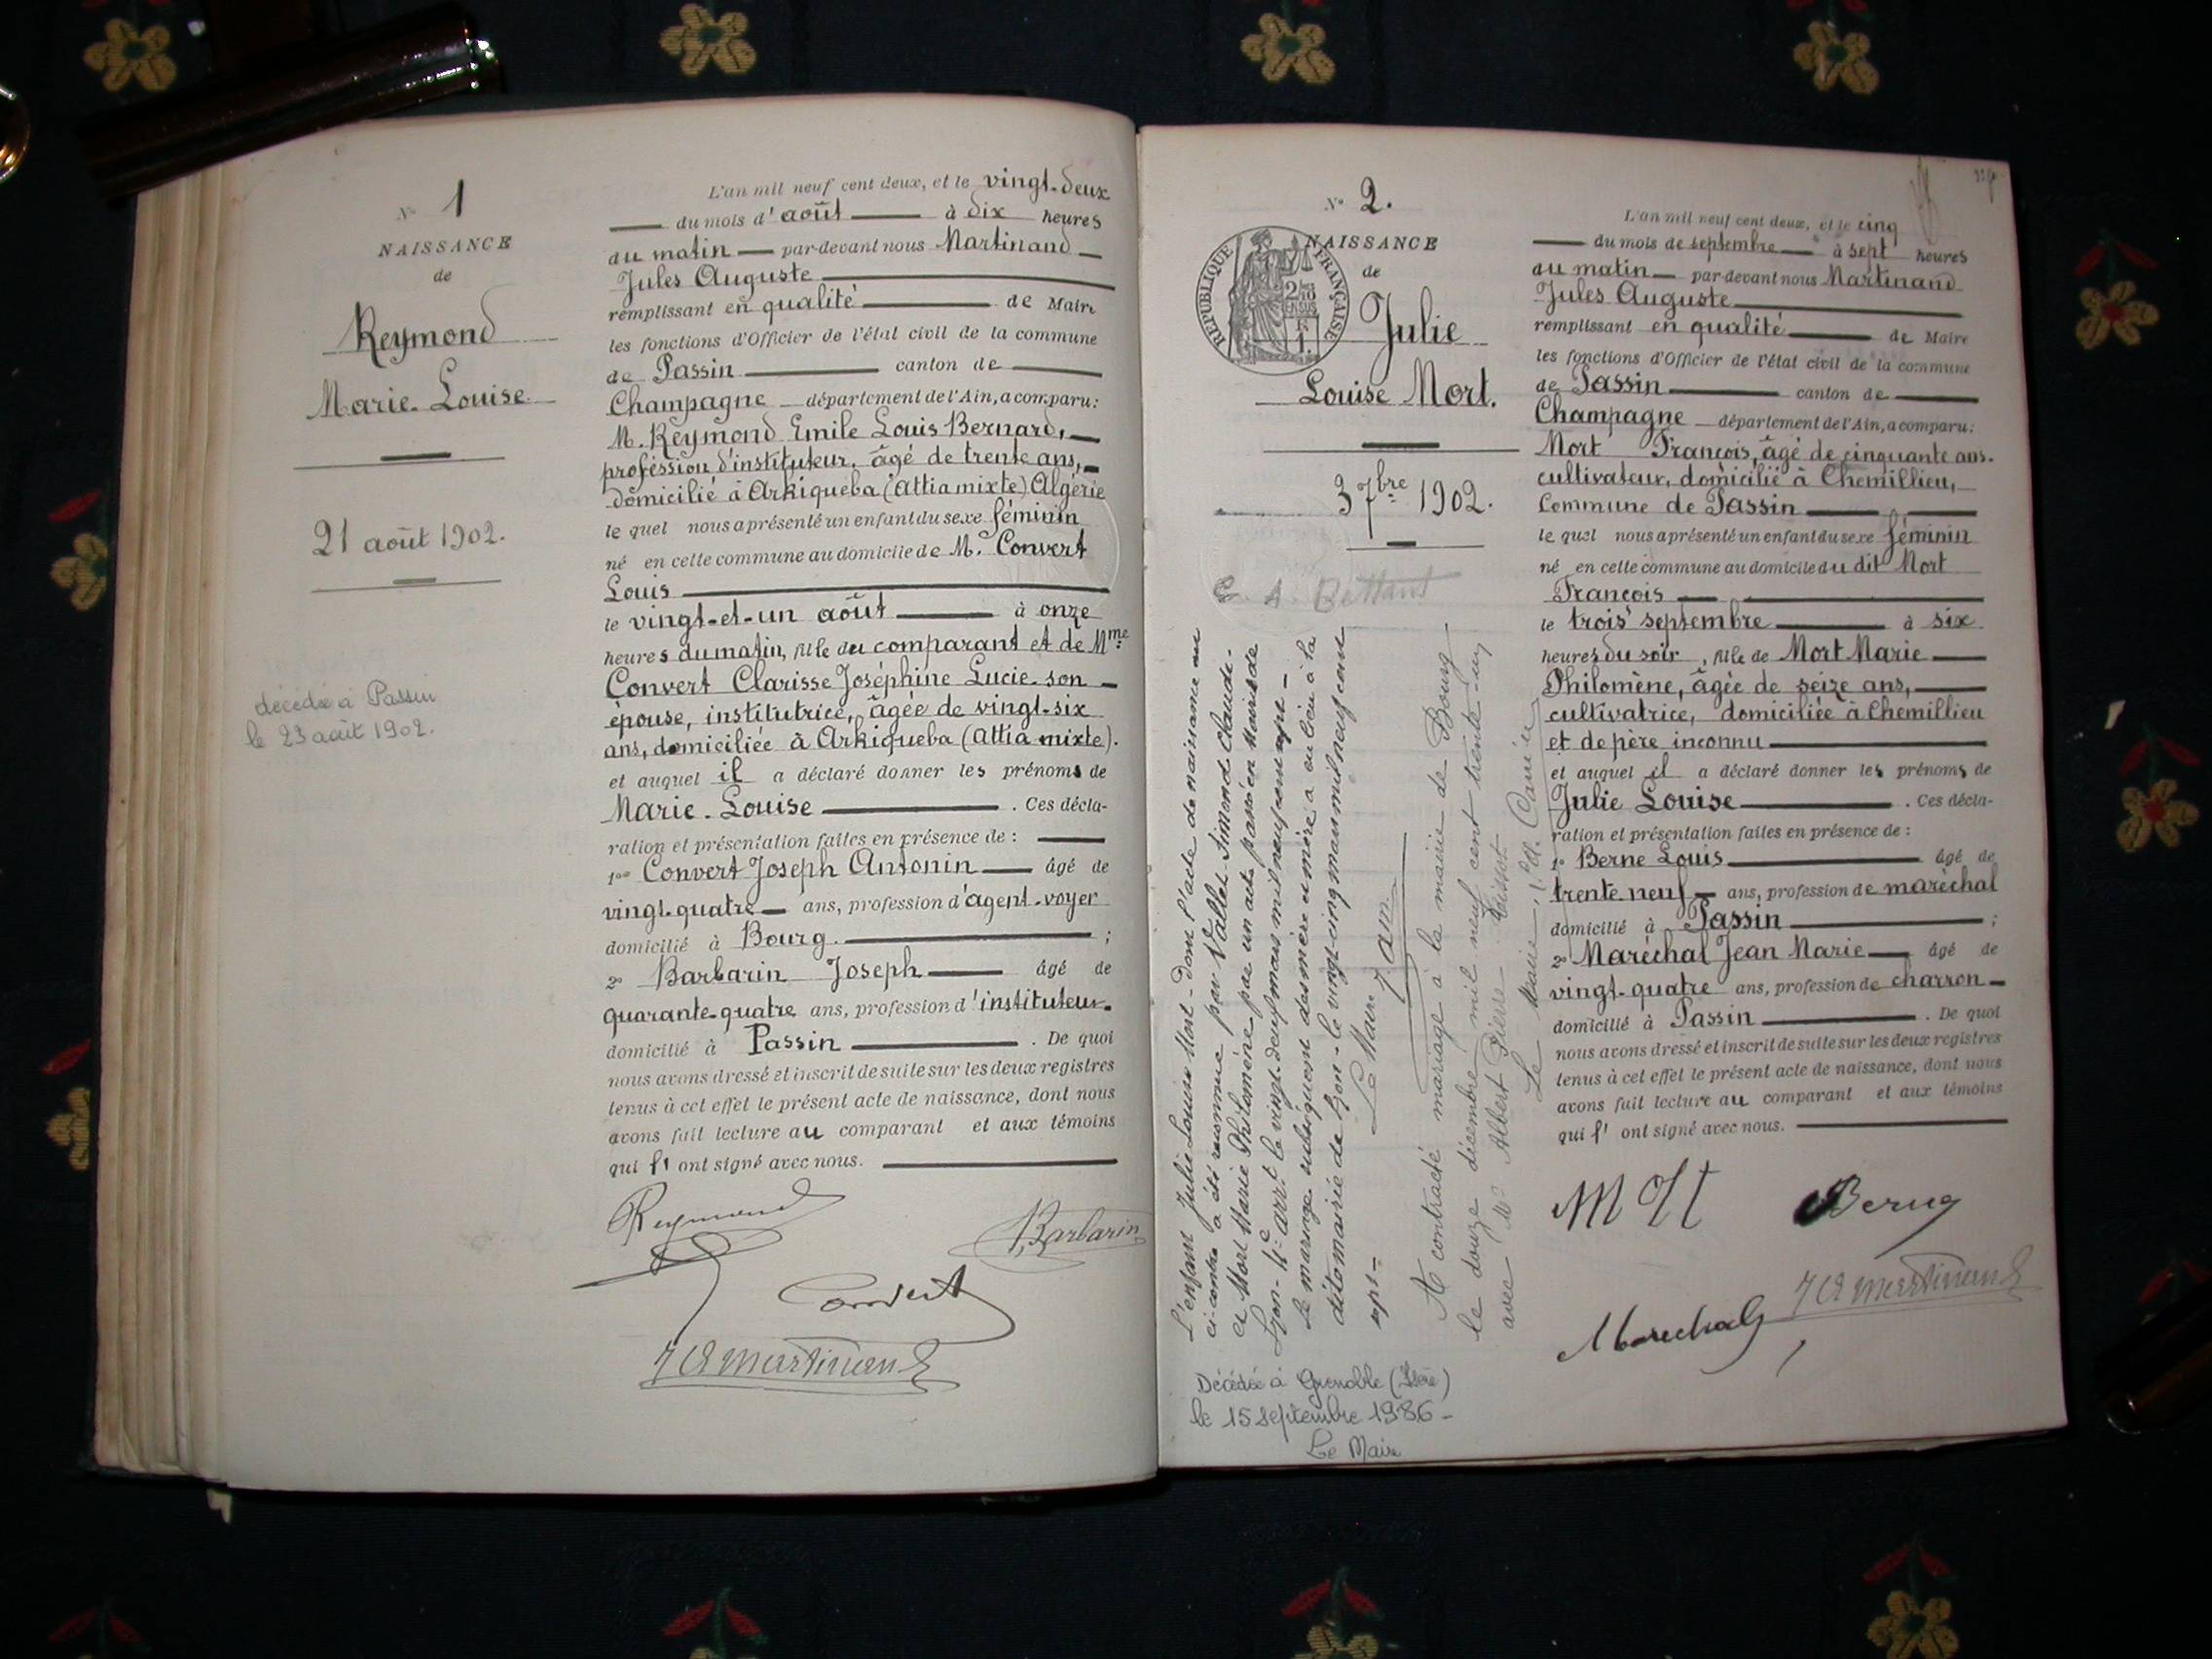 N° 1
NAISSANCE
de
Reymond
Marie-Louise.
21 août 1902.
décédée à Passin
le 23 août 1902.
L'an mil neuf cent deux, et le vingt-deux
du mois d'août à dix heures
du matin par-devant nous Martinand
Jules Auguste
remplissant en qualité de Maire
les fonctions d'Officier de l'état civil de la commune
de Passin canton de
Champagne département de l'Ain, a comparu:
M. Reymond Emile Louis Bernard,
profession d'instituteur, âgé de trente ans,
domicilié à Arkiqueba (Attia mixte) Algérie
le quel nous a présenté un enfant du sexe féminin
né en cette commune au domicile de M. Convert
Louis
le vingt-et-un août à onze
heures du matin, fille du comparant et de Mme
Convert Clarisse Joséphine Lucie son
épouse, institutrice, âgée de vingt-six
ans, domiciliée à Arkiqueba (Attia mixte).
et auquel il a déclaré donner les prénoms de
Marie-Louise . Ces décla-
ration et présentation faites en présence de :
1° Convert Joseph Antonin âgé de
vingt-quatre ans, profession d'agent-voyer
domicilié à Bourg ;
2° Barbarin Joseph âgé de
quarante-quatre ans, profession d'instituteur
domicilié à Passin . De quoi
nous avons dressé et inscrit de suite sur les deux registres
tenus à cet effet le présent acte de naissance, dont nous
avons fait lecture au comparant et aux témoins
qui l'ont signé avec nous.
Reymond
Barbarin
Convert
J A Martinand
N° 2.
NAISSANCE
de
RÉPUBLIQUE FRANÇAISE
Julie
Louise Mort.
3 7bre 1902.
L'enfant Julie Louise Mort - dont l'acte de naissance est
ci-contre a été reconnue par Vallet Simond Claude-
et Mort Marie Philomène par un acte passé en Mairie de
Lyon - 4e arrt le vingt-deux mars mil neuf cent sept -
Le mariage subséquent des mère et mère a eu lieu à la
dite mairie de Lyon - le vingt-cinq mars mil neuf cent
sept -
Le Maire
A contracté mariage à la mairie de Bourg
le douze décembre mil neuf cent trente-un
avec Mr Albert Pierre
Le Maire,
Décédée à Grenoble (Isère)
le 15 septembre 1986 -
Le Maire
L'an mil neuf cent deux, et le cinq
du mois de septembre à sept heures
du matin par-devant nous Martinand
Jules Auguste
remplissant en qualité de Maire
les fonctions d'Officier de l'état civil de la commune
de Passin canton de
Champagne département de l'Ain, a comparu:
Mort François, âgé de cinquante ans.
cultivateur, domicilié à Chemillieu,
Commune de Passin
le quel nous a présenté un enfant du sexe féminin
né en cette commune au domicile du dit Mort
François
le trois septembre à six
heures du soir, fille de Mort Marie
Philomène, âgée de seize ans,
cultivatrice, domiciliée à Chemillieu
et de père inconnu
et auquel il a déclaré donner les prénoms de
Julie Louise . Ces décla-
ration et présentation faites en présence de :
1° Berne Louis âgé de
trente neuf ans, profession de maréchal
domicilié à Passin ;
2° Maréchal Jean Marie âgé de
vingt-quatre ans, profession de charron
domicilié à Passin . De quoi
nous avons dressé et inscrit de suite sur les deux registres
tenus à cet effet le présent acte de naissance, dont nous
avons fait lecture au comparant et aux témoins
qui l'ont signé avec nous.
Mort
Berne
J A Martinand
Marechal